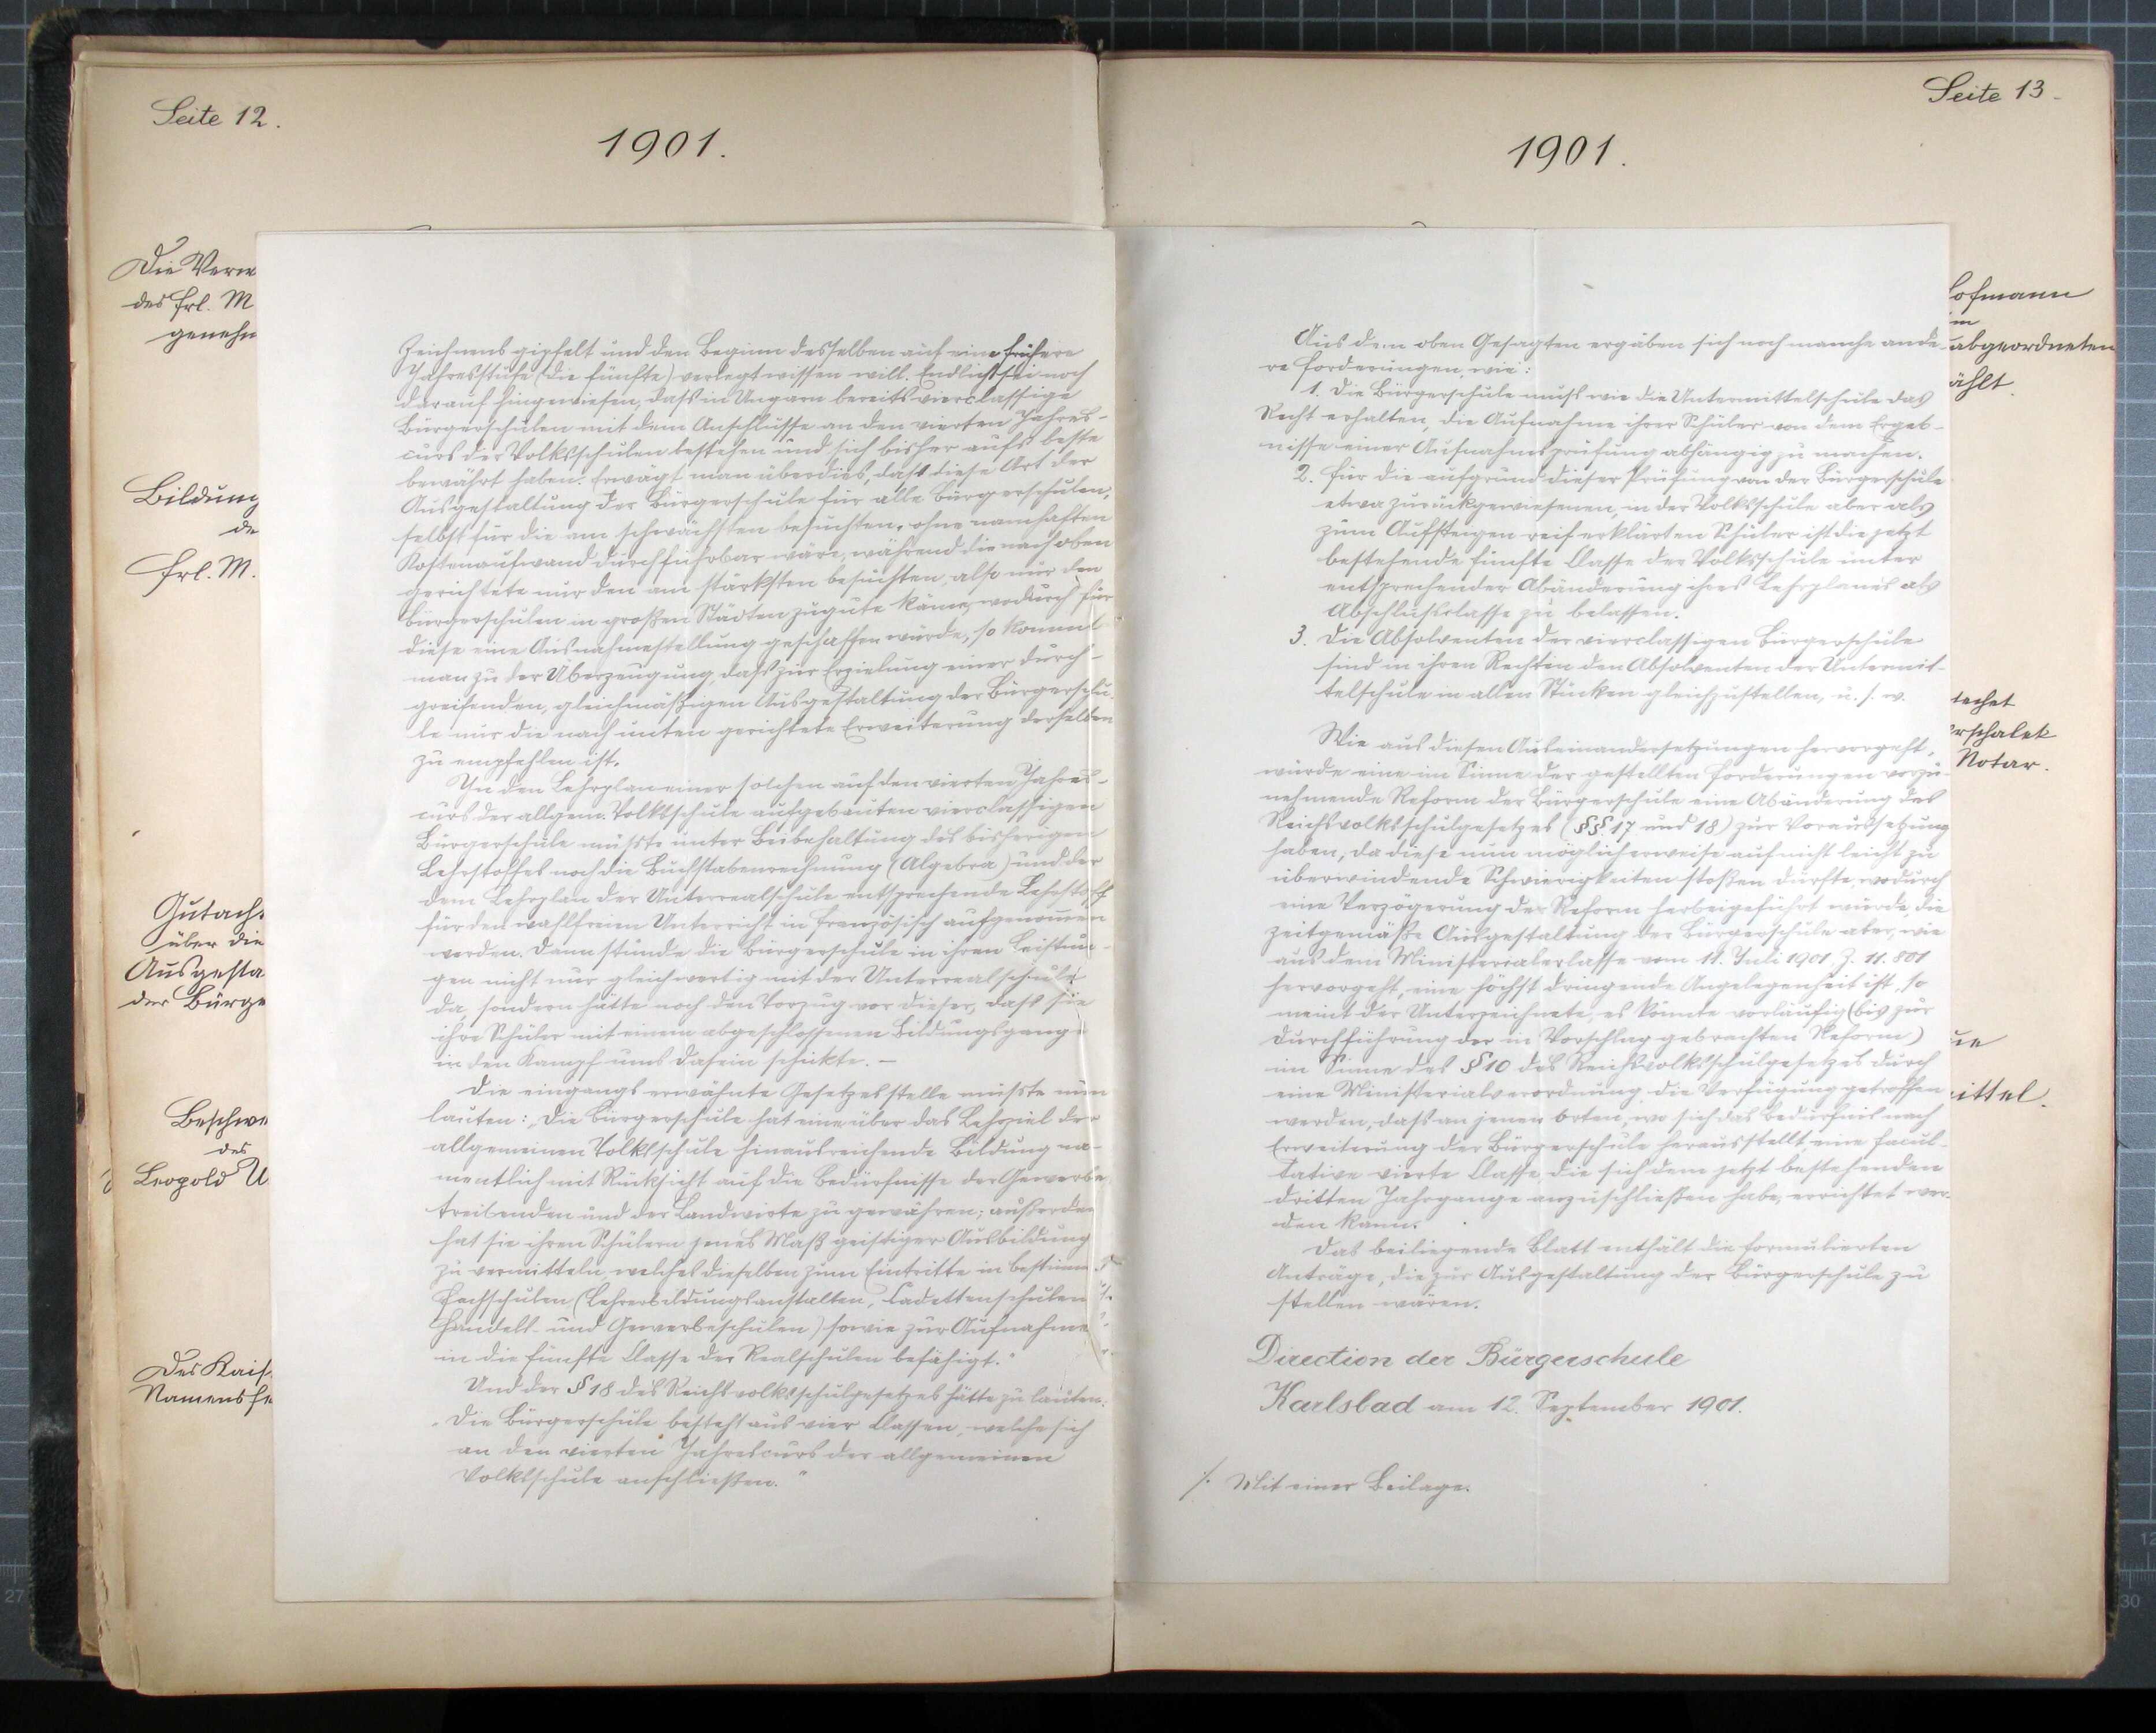 Seite 12.
1901.
Die Verw
des Frl. M
genehm
Bildung
de
Frl. M.
Gutach
über die
Ausgesta
der Bürge
Beschwe
des
Leopold U
Des Kais.
Namensfe
Zeichnens gipfelt und den Beginn desselben auf eine frühere
Jahresstufe (die fünfte) verlegt wissen will. Endlich sei noch
darauf hingewiesen, dass in Ungarn bereits vierclassige
Bürgerschulen mit dem Anschlusse an den vierten Jahres-
curs der Volksschulen bestehen und sich bisher aufs beste
bewährt haben. Erwägt man überdies, dass diese Art der
Ausgestaltung der Bürgerschule für alle Bürgerschulen,
selbst für die am schwächsten besuchten, ohne namhaften
Kostenaufwand durchführbar wäre, während die nach oben
gerichtete nur den am stärksten besuchten, also nur den
Bürgerschulen in großen Städten zugute käme, wodurch für
diese eine Ausnahmestellung geschaffen würde, so kommt
man zu der Überzeugung, dass zur Erzielung einer durch-
greifenden, gleichmäßigen Ausgestaltung der Bürgerschu-
le nur die nach unten gerichtete Erweiterung derselben
zu empfehlen ist.
In den Lehrplan einer solchen auf den vierten Jahres-
curs der allgem. Volksschule aufgebauten vierclassigen
Bürgerschule müsste unter Beibehaltung des bisherigen
Lehrstoffes noch die Buchstabenrechnung (Algebra) und der
dem Lehrplan der Unterrealschule entsprechende Lehrstoff
für den wahlfreien Unterricht in Französisch aufgenommen
werden. Dann stünde die Bürgerschule in ihren Leistun-
gen nicht nur gleichwertig mit der Unterrealschule
da, sondern hätte noch den Vorzug vor dieser, dass sie
ihre Schüler mit einem abgeschlossenen Bildungsgange
in den Kampf ums Dasein schickte. –
Die eingangs erwähnte Gesetzesstelle müsste nun
lauten: „Die Bürgerschule hat eine über das Lehrziel der
allgemeinen Volksschule hinausreichende Bildung na-
mentlich mit Rücksicht auf die Bedürfnisse der Gewerbe
treibenden und der Landwirte zu gewähren; außerdem
hat sie ihren Schülern jenes Maß geistiger Ausbildung
zu vermitteln, welches dieselben zum Eintritte in bestimm
Fachschulen (Lehrerbildungsanstalten, Cadettenschulen
Handels- und Gewerbeschulen) sowie zur Aufnahme
in die fünfte Classe der Realschulen befähigt.“
Und der § 18 des Reichsvolksschulgesetzes hätte zu lauten:
„Die Bürgerschule besteht aus vier Classen, welche sich
an den vierten Jahrescurs der allgemeinen
Volksschule anschließen.“
Seite 13.
1901.
Aus dem oben Gesagten ergäben sich noch manche ande-
re Forderungen, wie:
1. Die Bürgerschule muss wie die Untermittelschule das
Recht erhalten, die Aufnahme ihrer Schüler von dem Ergeb-
nisse einer Aufnahmsprüfung abhängig zu machen.
2. Für die aufgrund dieser Prüfung von der Bürgerschule
etwa zurückgewiesenen, in der Volksschule aber als
zum Aufsteigen reif erklärten Schüler ist die jetzt
bestehende fünfte Classe der Volksschule unter
entsprechender Abänderung ihres Lehrplanes als
Abschlussclasse zu belassen.
3. Die Absolventen der vierclassigen Bürgerschule
sind in ihren Rechten den Absolventen der Untermit-
telschule in allen Stücken gleichzustellen, u. s. w.
Wie aus diesen Auseinandersetzungen hervorgeht,
würde eine im Sinne der gestellten Forderungen vorzu-
nehmende Reform der Bürgerschule eine Abänderung des
Reichsvolksschulgesetzes (§§ 17 und 18) zur Voraussetzung
haben, da diese nun möglicherweise auf nicht leicht zu
überwindende Schwierigkeiten stoßen dürfte, wodurch
eine Verzögerung der Reform herbeigeführt würde, die
zeitgemäße Ausgestaltung der Bürgerschule aber, wie
aus dem Ministerialerlasse vom 11. Juli 1901, Z. 11.801
hervorgeht, eine höchst dringende Angelegenheit ist, so
meint der Unterzeichnete, es könnte vorläufig (bis zur
Durchführung der in Vorschlag gebrachten Reform)
im Sinne des § 10 des Reichsvolksschulgesetzes durch
eine Ministerialverordnung die Verfügung getroffen
werden, dass an jenen Orten, wo sich das Bedürfnis nach
Erweiterung der Bürgerschule herausstellt, eine facul-
tative vierte Classe, die sich dem jetzt bestehenden
dritten Jahrgange anzuschließen habe, errichtet wer-
den kann.
Das beiliegende Blatt enthält die formulierten
Anträge, die zur Ausgestaltung der Bürgerschule zu
stellen wären.
Direction der Bürgerschule
Karlsbad am 12. September 1901.
/. Mit einer Beilage.
Hofmann
m
abgeordneten
ählt.
tachet
rschalek
Notar.
ue
ittel.
27
12
30